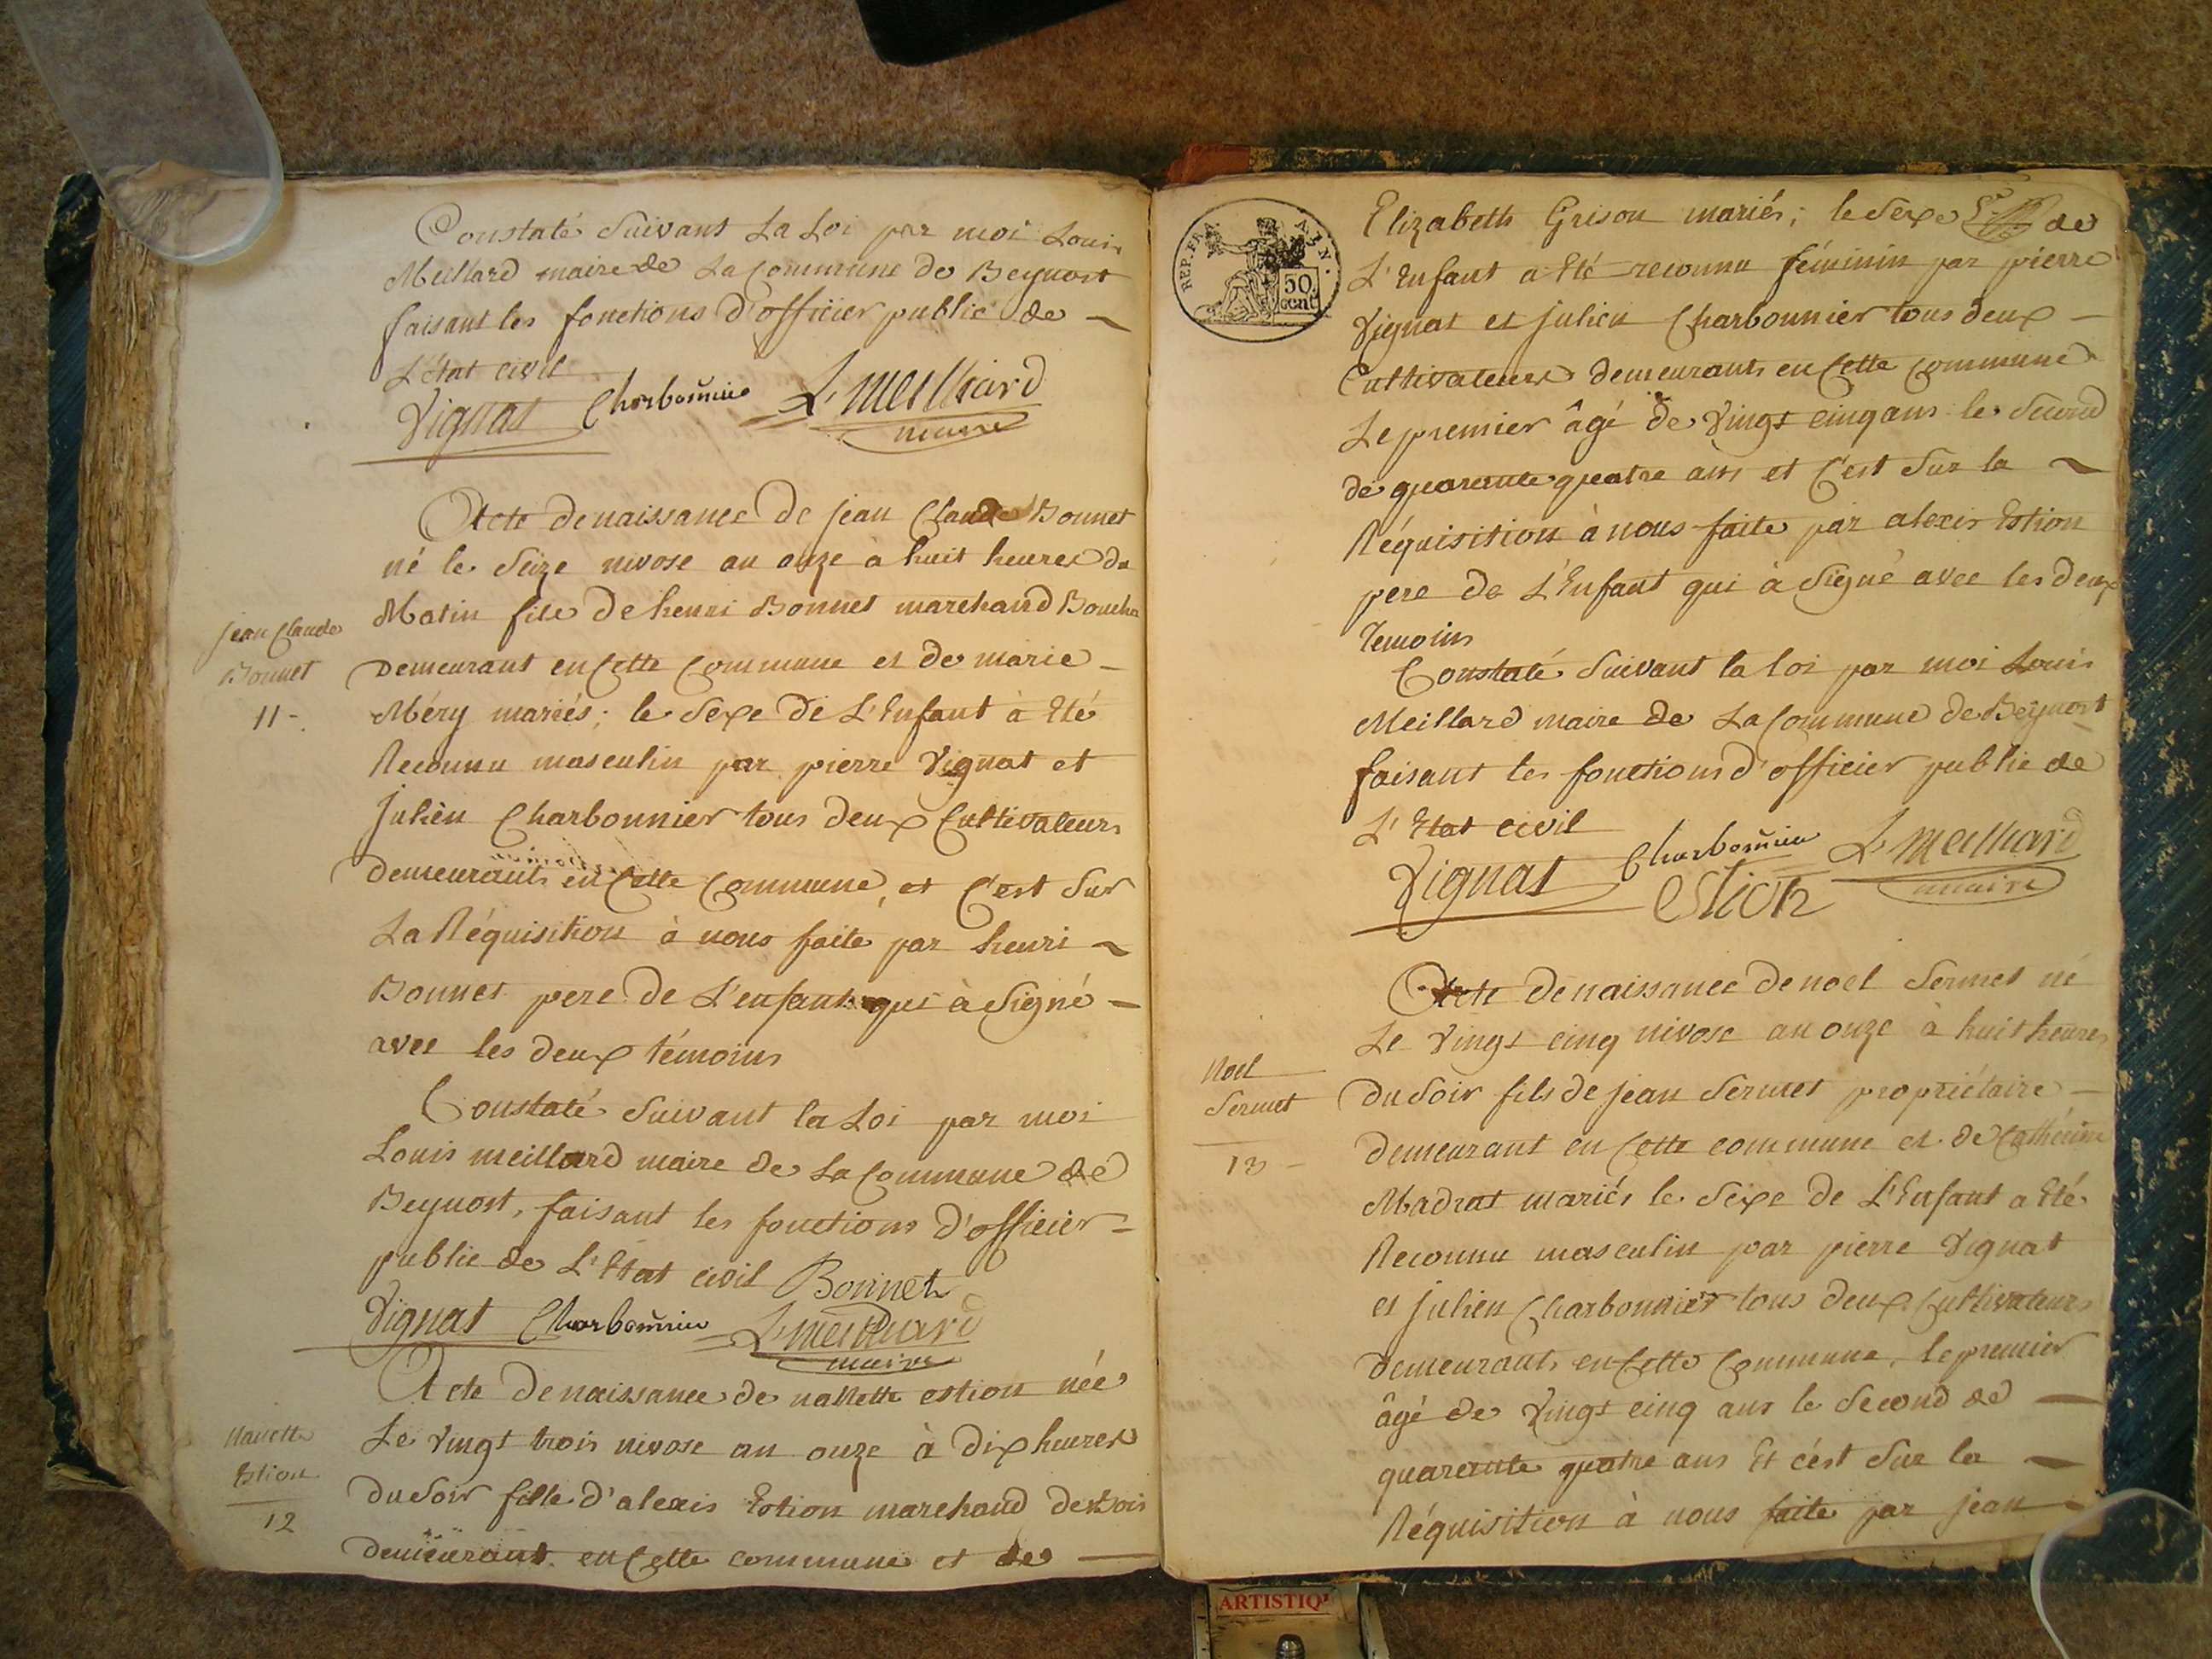 Constaté Suivant La Loi par moi Louis
Meillard maire de La Commune de Beynost
faisant les fonctions d'officier public de
L'état civil
Vignat Charbonnier L. Meilliard
maire
Acte de naissance de jean Claude Bonnet
né le Seize nivose an onze à huit heures du
Matin fils de henri Bonnet marchand Boucher
jean Claude
Bonnet
11
Demeurant en Cette Commune et de marie
Méry mariés; le Sexe de L'Enfant à Eté
Reconnu masculin par pierre Vignat et
Julien Charbonnier tous deux Cultivateurs
demeurants en Cette Commune, et C'est Sur
La Réquisition à nous faite par henri
Bonnet pere de L'enfant qui à Signé
avec les deux témoins
Constaté Suivant la Loi par moi
Louis meillard maire de La Commune de
Beynost, faisant les fonctions d'officier
public de L'Etat civil Bonnet
Vignat Charbonnier L. Meilliard
maire
Acte de naissance de nanette estion née
Nanette
Estion
12
Le Vingt trois nivose an onze à dix heures
du Soir fille d'alexis Estion marchand de Bois
demeurant en Cette commune et de
REP. FRA. AIN.
50
cent
Elizabeth Grison mariés; le Sexe de
L'Enfant a Eté reconnu féminin par pierre
Vignat et julien Charbonnier tous deux
Cultivateurs demeurants en Cette commune
Le premier âgé de Vingt cinq ans le Second
de quarante quatre ans et C'est Sur la
Réquisition à nous faite par alexis Estion
pere de L'Enfant qui à Signé avec les deux
Temoins
Constaté Suivant la loi par moi Louis
Meillard maire de La Commune de Beynost
faisant les fonctions d'officier public de
L'Etat civil
Vignat Charbonnier L. Meilliard
estion maire
Acte de naissance de noel Sermet né
Le Vingt cinq nivose an onze à huit heures
Noel
Sermet
13
du Soir fils de jean Sermet propriétaire
demeurant en Cette commune et de Catherine
Madrat mariés le Sexe de L'Enfant a Eté
Reconnu masculin par pierre Vignat
et julien Charbonnier tous deux Cultivateurs
demeurants en Cette Commune, le premier
âgé de Vingt cinq ans le Second de
quarante quatre ans Et c'est Sur la
Réquisition à nous faite par jean
ARTISTIQ